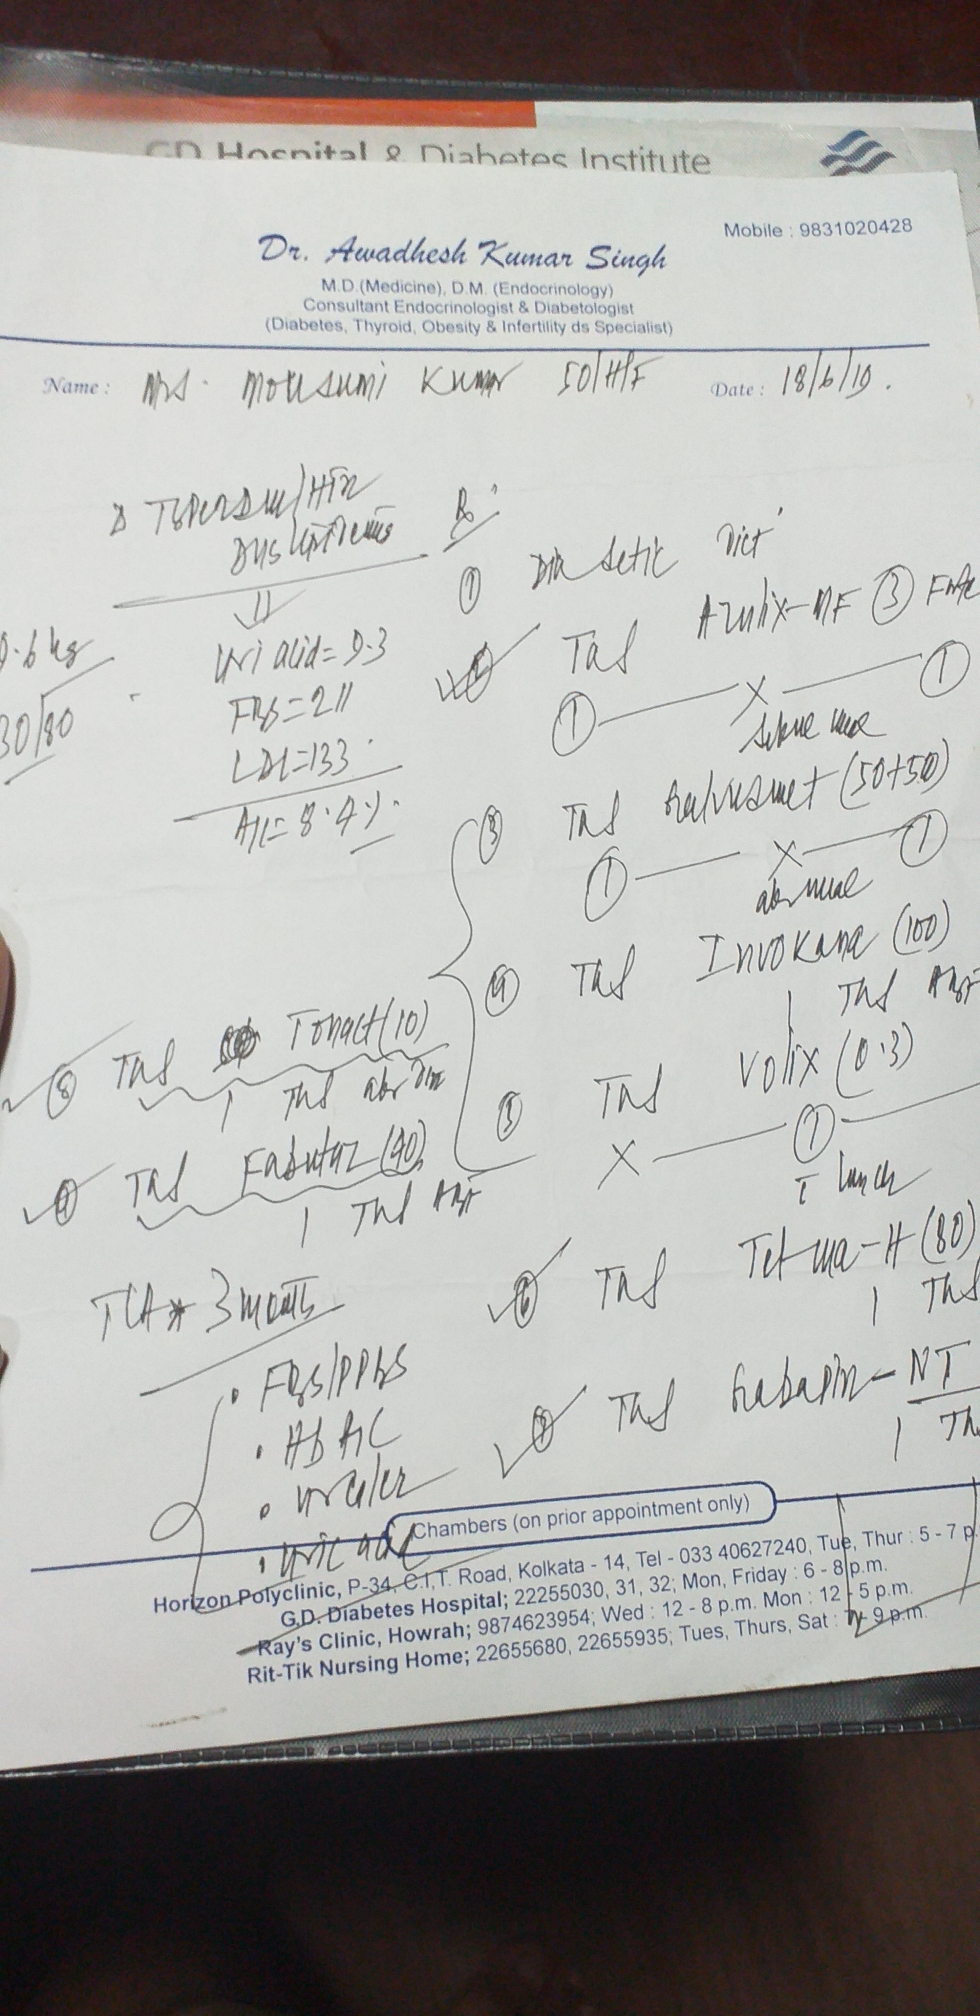 GD Hospital & Diabetes Institute
Mobile : 9831020428
Dr. Awadhesh Kumar Singh
M.D.(Medicine), D.M. (Endocrinology)
Consultant Endocrinologist & Diabetologist
(Diabetes, Thyroid, Obesity & Infertility ds Specialist)
Name : Mrs. Mousumi Kumar 50/H/F Date : 18/6/19.
HTN
Rx
① Diabetic Diet
Uri acid = 9.3
FBS = 211
LDL = 133
A1c = 8.4%.
30/80
Tab Azulix-MF ③ Forte
① — X — ①
③ Tab Galvusmet (50+50)
① — X — ①
④ Tab Invokana (100)
1 Tab ABF
⑤ Tab Volix (0.3)
X — ① —
lunch
⑥ Tab Telma-H (80)
1 Tab
⑦ Tab Gabapin-NT
1
⑧ Tab Tonact (10)
1 Tab
⑨ Tab Fabutaz (40)
1 Tab ABF
TCA 3 months
• FBS/PPBS
• HbA1c
• Ur/Cr
• Uric acid
Chambers (on prior appointment only)
Horizon Polyclinic, P-34, C.I.T. Road, Kolkata - 14, Tel - 033 40627240, Tue, Thur : 5 - 7 p.
G.D. Diabetes Hospital; 22255030, 31, 32; Mon, Friday : 6 - 8 p.m.
Ray's Clinic, Howrah; 9874623954; Wed : 12 - 8 p.m. Mon : 12 - 5 p.m.
Rit-Tik Nursing Home; 22655680, 22655935; Tues, Thurs, Sat : - 9 p.m.